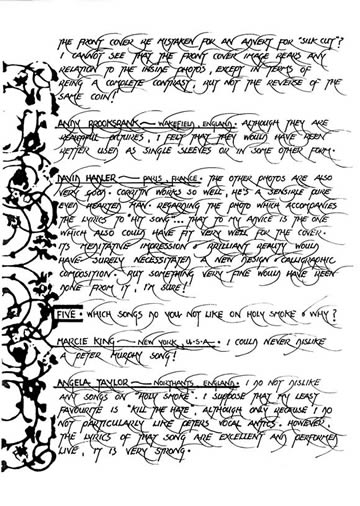 THE FRONT COVER BE MISTAKEN FOR AN ADVERT FOR "SILK CUT"?
I CANNOT SEE THAT THE FRONT COVER IMAGE BEARS ANY
RELATION TO THE INSIDE PHOTOS, EXCEPT IN TERMS OF
BEING A COMPLETE CONTRAST, BUT NOT THE REVERSE OF THE
SAME COIN!
ANDY BROOKSBANK — WAKEFIELD, ENGLAND. ALTHOUGH THEY ARE
BEAUTIFUL PICTURES, I FELT THAT THEY WOULD HAVE BEEN
BETTER USED AS SINGLE SLEEVES OR IN SOME OTHER FORM.
DAVID — PARIS, FRANCE. THE OTHER PHOTOS ARE ALSO
VERY GOOD. CORBIJN WORKS SO WELL, HE'S A SENSIBLE PURE
EVEN HEARTED MAN. REGARDING THE PHOTO WHICH ACCOMPANIES
THE LYRICS TO "HIT SONG"... THAT TO MY ADVICE IS THE ONE
WHICH ALSO COULD HAVE FIT VERY WELL FOR THE COVER.
ITS MEDITATIVE IMPRESSION & BRILLIANT BEAUTY WOULD
HAVE SURELY NECESSITATED A NEW DESIGN & CALLIGRAPHIC
COMPOSITION. BUT SOMETHING VERY FINE WOULD HAVE BEEN
DONE FROM IT, I'M SURE!
FIVE. WHICH SONGS DO YOU NOT LIKE ON HOLY SMOKE & WHY?
MARCIE KING — NEW YORK, U.S.A. I COULD NEVER DISLIKE
A PETER MURPHY SONG!
ANGELA TAYLOR — NORTHANTS, ENGLAND. I DO NOT DISLIKE
ANY SONGS ON "HOLY SMOKE". I SUPPOSE THAT MY LEAST
FAVOURITE IS "KILL THE HATE", ALTHOUGH ONLY BECAUSE I DO
NOT PARTICULARLY LIKE PETERS VOCAL ANTICS. HOWEVER,
THE LYRICS OF THAT SONG ARE EXCELLENT AND PERFORMED
LIVE, IT IS VERY STRONG.